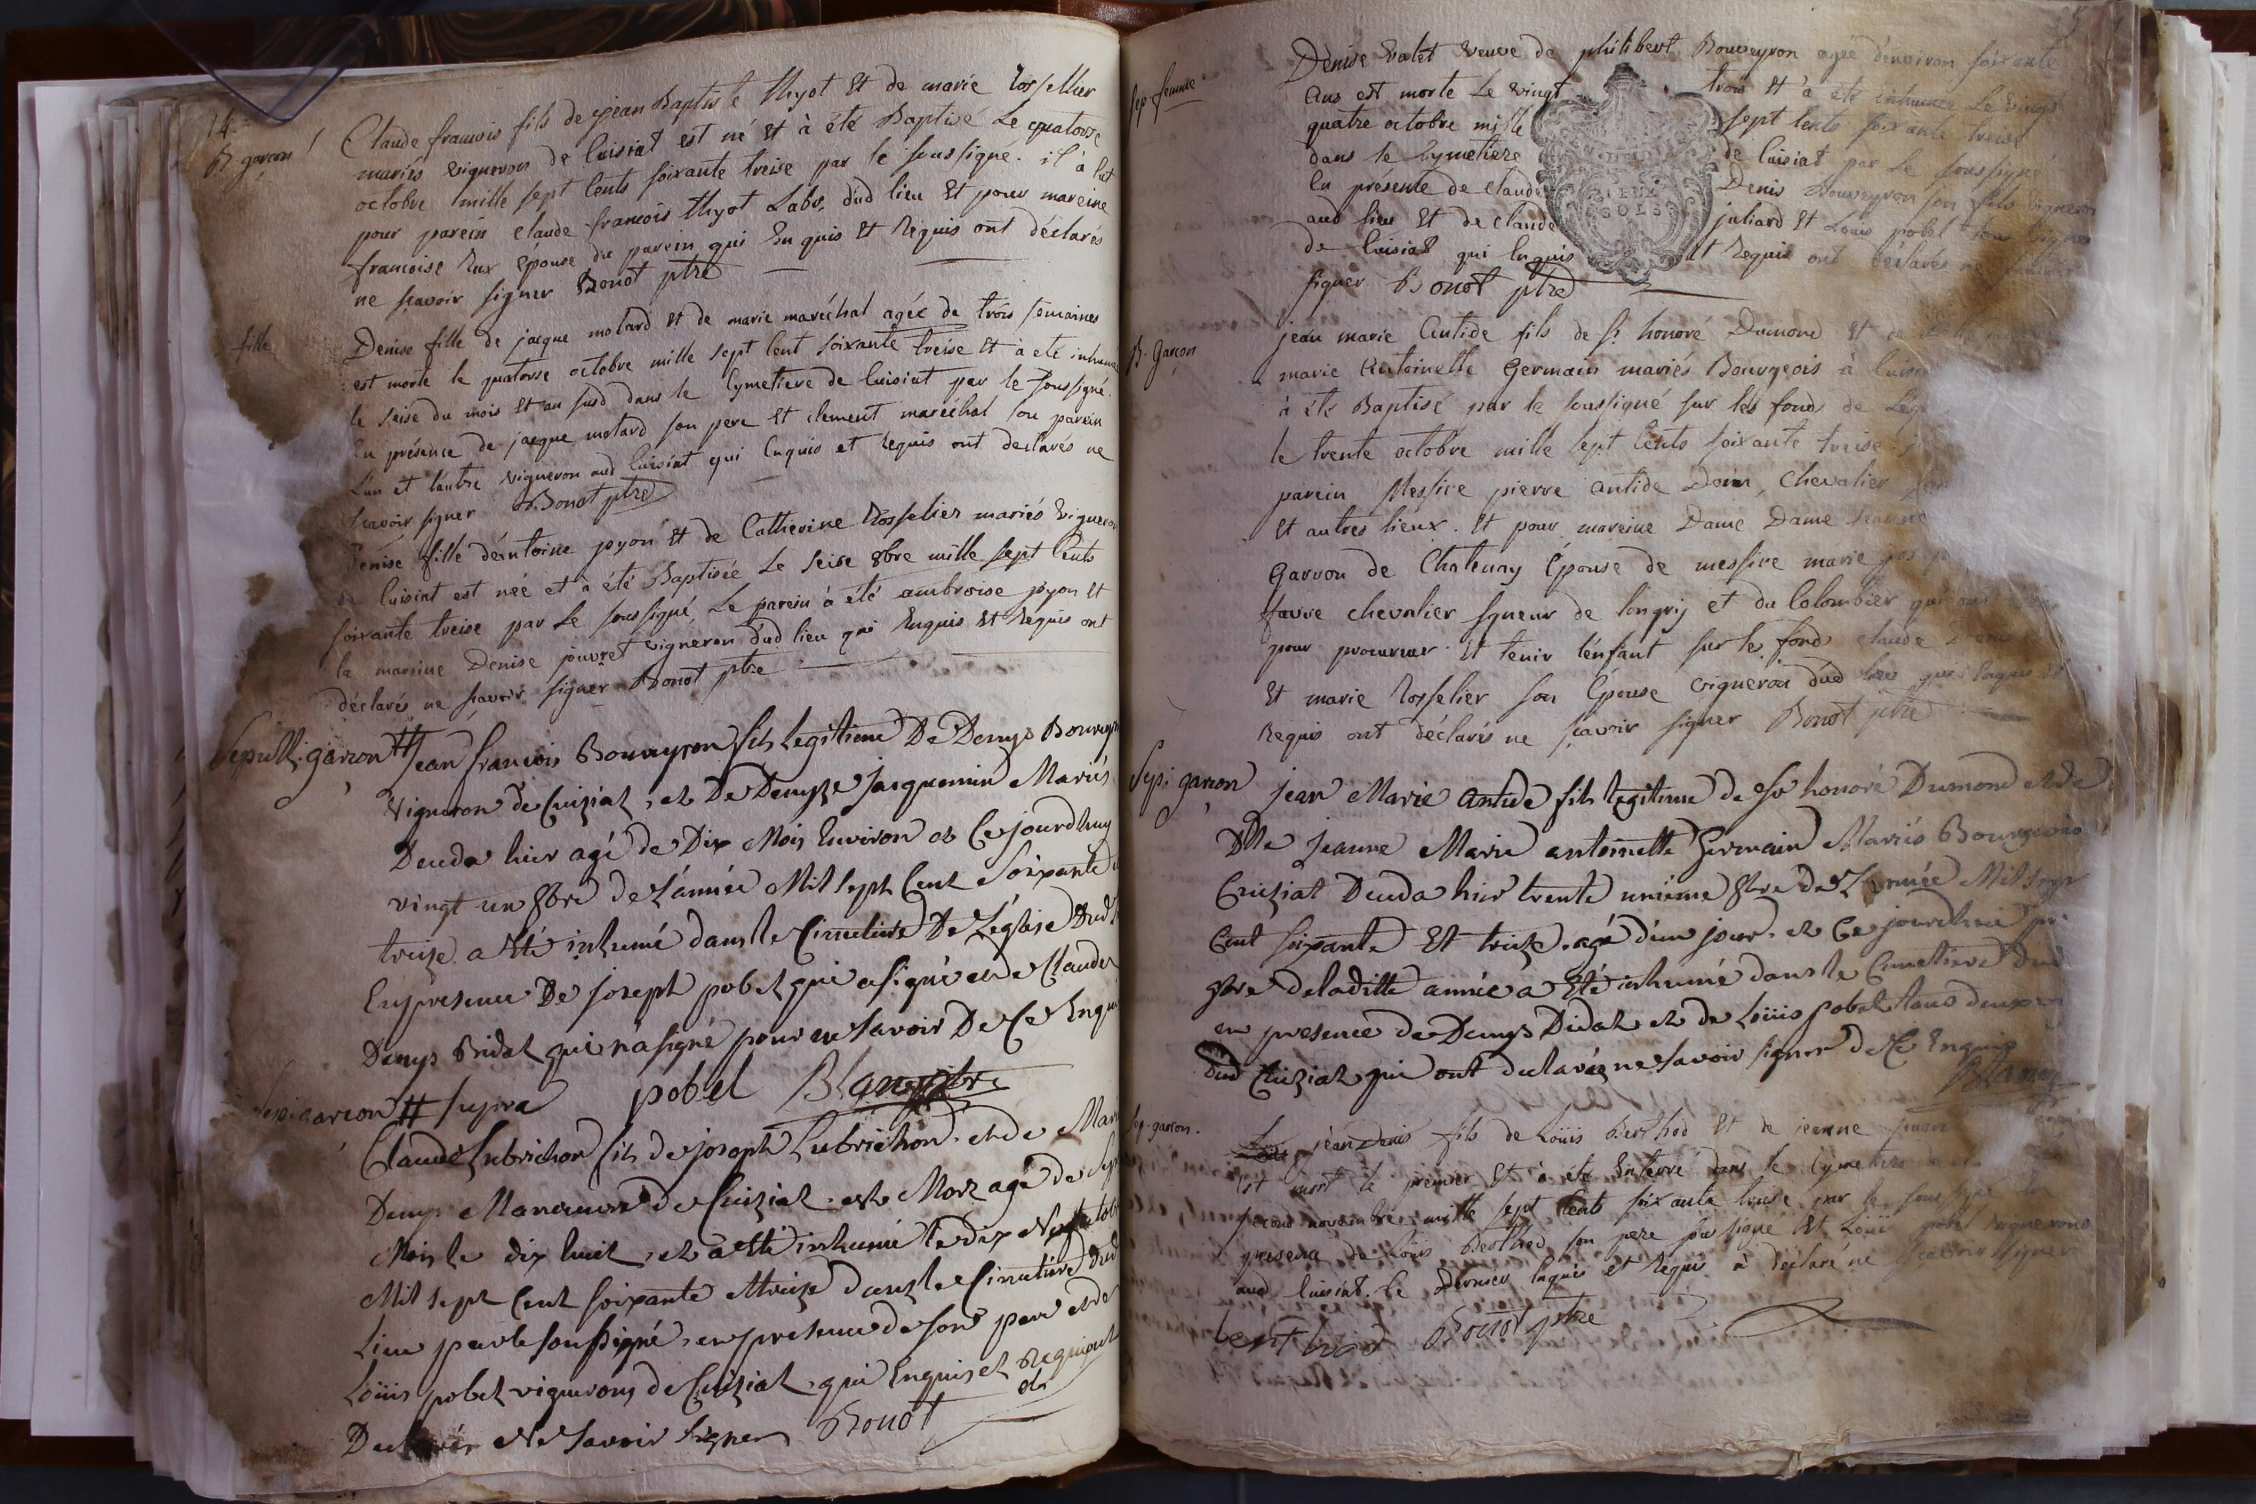 14.
B. garcon
Claude francois fils de jean Baptiste thyot Et de marie Rosselier
mariés vigneron de Cuisiat est né Et à été Baptisé Le quatorze
octobre mille sept Cents soixante treise par le soussigné. il à Eut
pour parein Claude francois thyot Labr. dud lieu Et pour mareine
francoise Rux Epouse du parein qui Enquis Et Requis ont déclarés
ne scavoir signer Bonot ptre
fille
Denise fille de jacque motard Et de marie maréchal agée de trois semaines
est morte le quatorse octobre mille sept Cent soixante treise Et à été inhumé
le seise du mois Et an susd dans le Cymetiere de Cuisiat par le soussigné.
En présence de jacque motard son pere Et clement maréchal son parein
L'un et lautre vigneron aud Cuisiat qui Enquis et Requis ont déclarés ne
scavoir signer Bonot ptre
Denise fille d'éantoine pyon Et de Catherine Rosselier mariés vigneron
de Cuisiat est née et à été Baptisée Le seise 8bre mille sept Cents
soixante treise par Le soussigné, Le parein à été ambroise pyon Et
la mareine Denise jouvret vigneron dud lieu qui Enquis Et Requis ont
déclarés ne scavoir signer Bonot ptre
Sepult. garcon
Jean francois Bouveyron fils Legitime De Denys Bouveyron
vigneron de Cuiziat, et De Denyze Jacquemin Mariés
Deceda hier agé de Dix Mois Environ et Cejourdhuy
vingt un 8bre de L'année Mil Sept Cent Soixante
treize a été inhumé dans le Cimetiere De L'église Dud
En presence De joseph pobel qui a signé et de Claude
Denys Bridat qui n'a signé pour ne savoir De Ce Enquis
pobel Blanc ptre
garcon supra
Claude Lubrichon fils de joseph Lubrichon et de Marie
Denys Manouvre de Cuiziat est Mort agé de Sept
Mois le dix huit, et a été inhumé le dix Neuf octobre
Mil sept Cent soixante Et treize dans le Cimetiere Dud
Lieu par le soussigné, en presence de son pere et de
Loüis pobel vignerons de Cuiziat, qui Enquis et Requis ont
Declarés Ne savoir signer Bonot
Sep. femme
Denise valet veuve de philibert Bouveyron agée d'environ soixante
Ans est morte Le vingt trois Et à été inhumée Le vingt
quatre octobre mille sept Cents soixante treise
dans le Cymetiere de Cuisiat par Le soussigné
En présence de Claude Denis Bouveyron son fils vigneron
aud lieu Et de Claude juliard Et Louis pobel
de Cuisiat qui Enquis Et Requis ont déclarés ne
signer Bonot ptre
SOLS
B. Garçon
jean marie Antide fils de sr honoré Dumond Et
marie Antoinette Germain mariés Bourgeois à Cuisiat
à été Baptisé par le soussigné sur les fonds de L'égl
le trente octobre mille sept Cents soixante treise
parein Messire pierre antide Doin, Chevalier
Et autres lieux. Et pour mareine Dame Dame jeanne
Garron de Chatenay Epouse de messire marie
favre Chevalier sgneur de Longry et du Colombier qui ont
pour procureur Et tenir l'enfant sur le fond claude
Et marie Rosselier son Epouse vigneron dud lieu qui Enquis Et
Requis ont déclarés ne scavoir signer Bonot ptre
Sep. garcon
jean Marie Antide fils legitime de Sr honoré Dumond et de
Dlle jeanne Marie antoinette Germain Mariés Bourgeois
Cuiziat Deceda hier trente unième 8bre de L'année Mil sept
Cent soixante Et treize agé d'un jour, et Ce jourdhui
9bre de laditte année a Eté inhumé dans le Cimetiere Dud
en presence de Denys Didat et de Loüis pobel tous deux
Dud Cuiziat qui ont declarés ne savoir signer de Ce Enquis
Blanc
Sep. garcon.
jean Denis fils de Loüis Berthod Et de jeanne
Est mort le premier Et à été Enterré dans le Cymetiere
second novembre mille sept Cents soixante treise par le soussigné En
presence de Loüis Berthod son pere soussigné Et Loüis pobel vignerons
aud Cuisiat. Le Dernier Enquis et Requis à déclaré ne scavoir signer
Bonot ptre